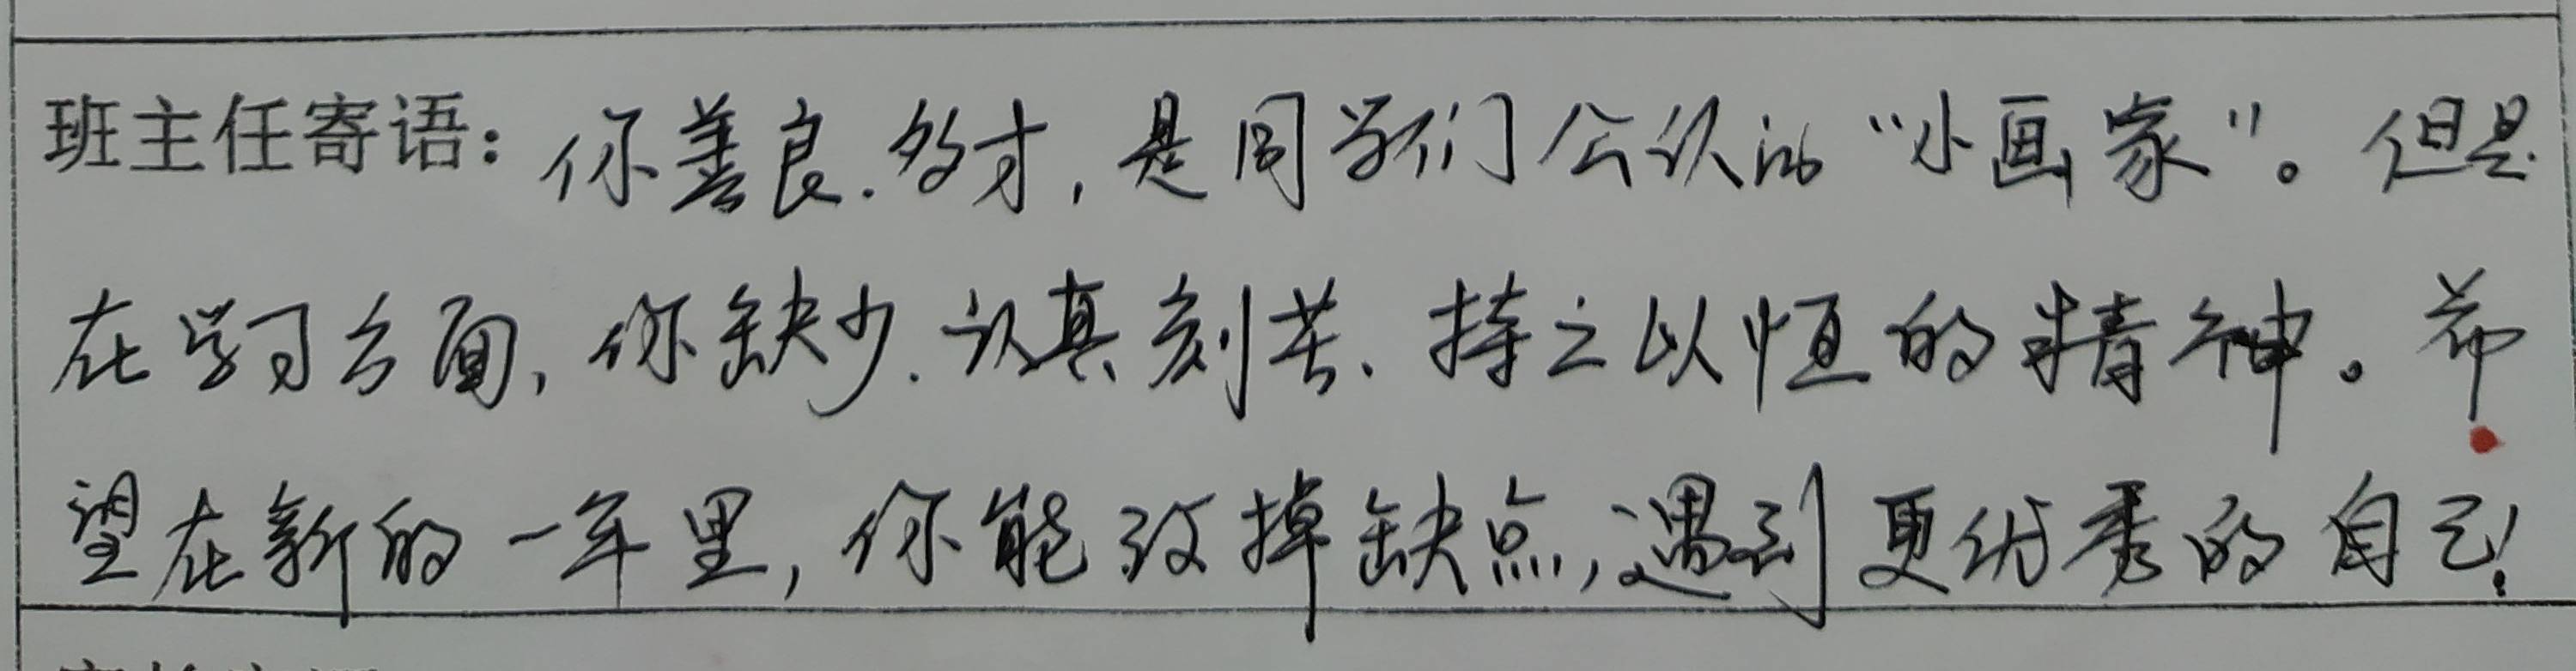 班主任寄语：你善良.多才,是同学们公认的“小画家”。但是
在学习方面,你缺少.认真刻苦、持之以恒的精神。希
望在新的一年里,你能改掉缺点,遇到更优秀的自己!